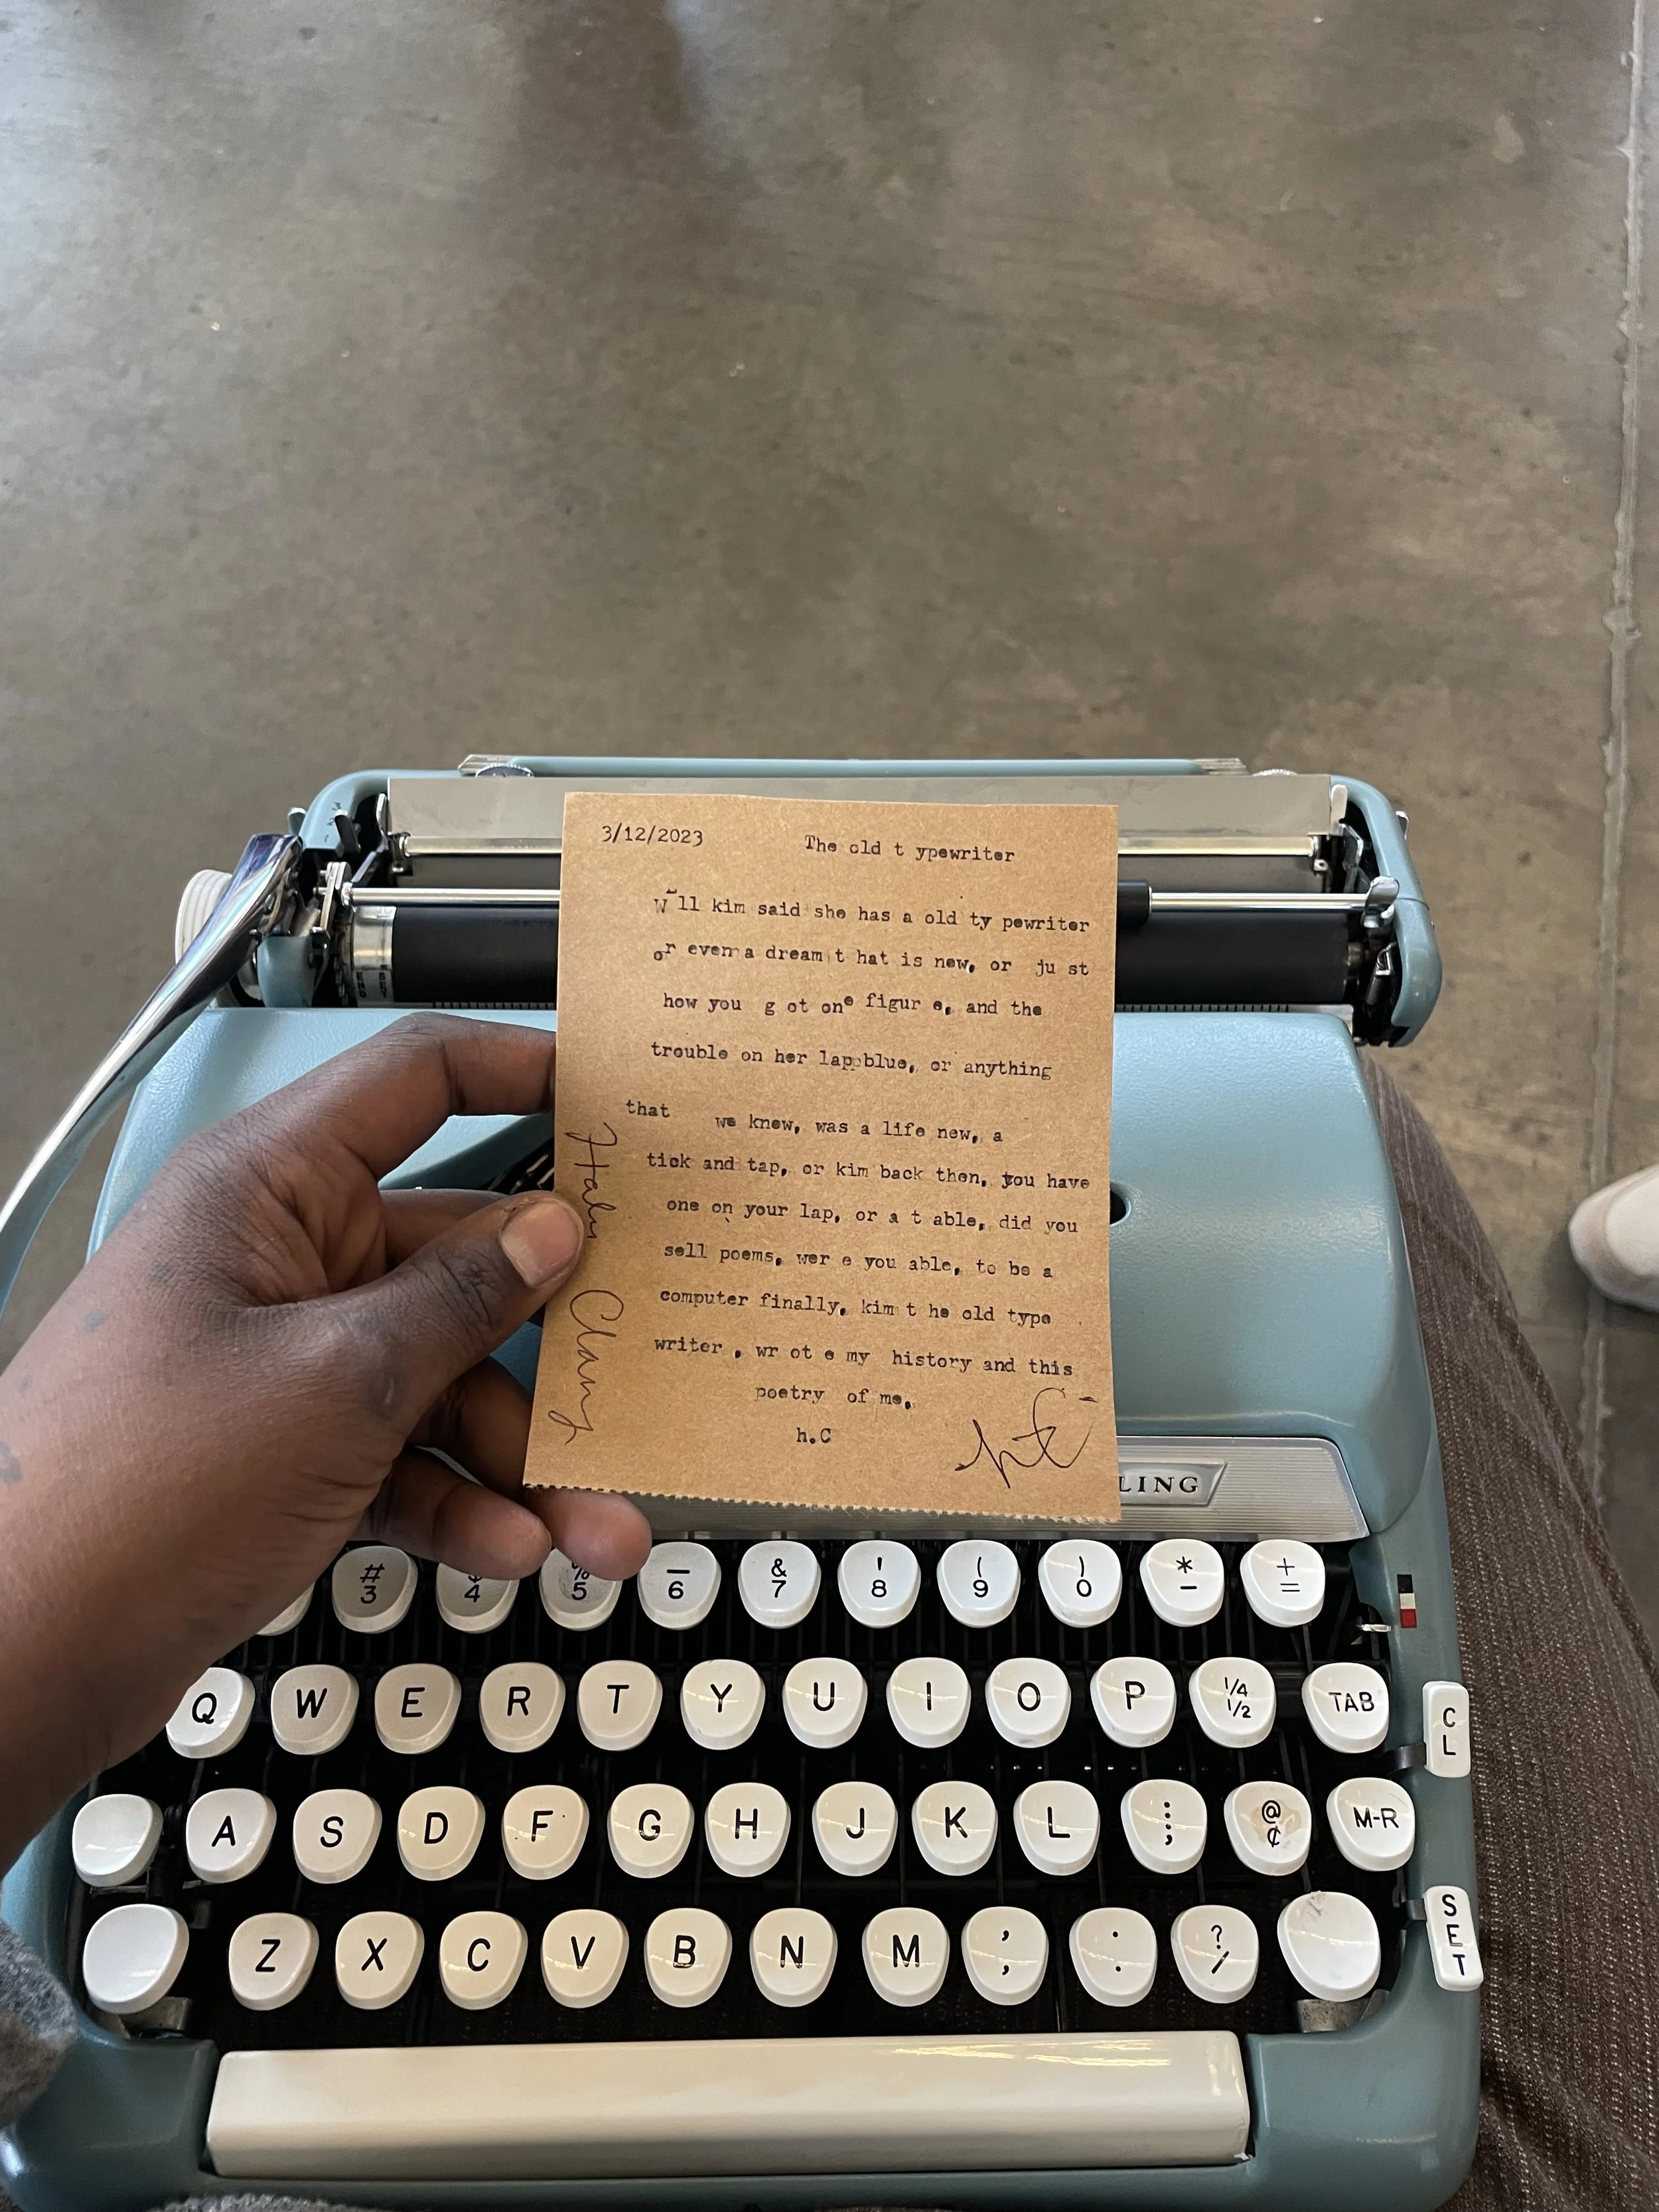 3/12/2023 The old t ypewriter
W ll kim said she has a old ty pewriter
or even a dream t hat is new, or ju st
how you g ot one figur e, and the
trouble on her lap blue, or anything
that we know, was a life new, a
tick and tap, or kim back then, you have
one on your lap, or a t able, did you
sell poems, wer e you able, to be a
computer finally, kim t he old type
writer , wr ot e my history and this
poetry of me,
h.C
LING
# 3 4 % 5 — 6 & 7 ! 8 ( 9 ) 0 * - + =
Q W E R T Y U I O P 1/4 1/2 TAB
CL
A S D F G H J K L : ; @ ¢ M-R
SET
Z X C V B N M , , . . ? /